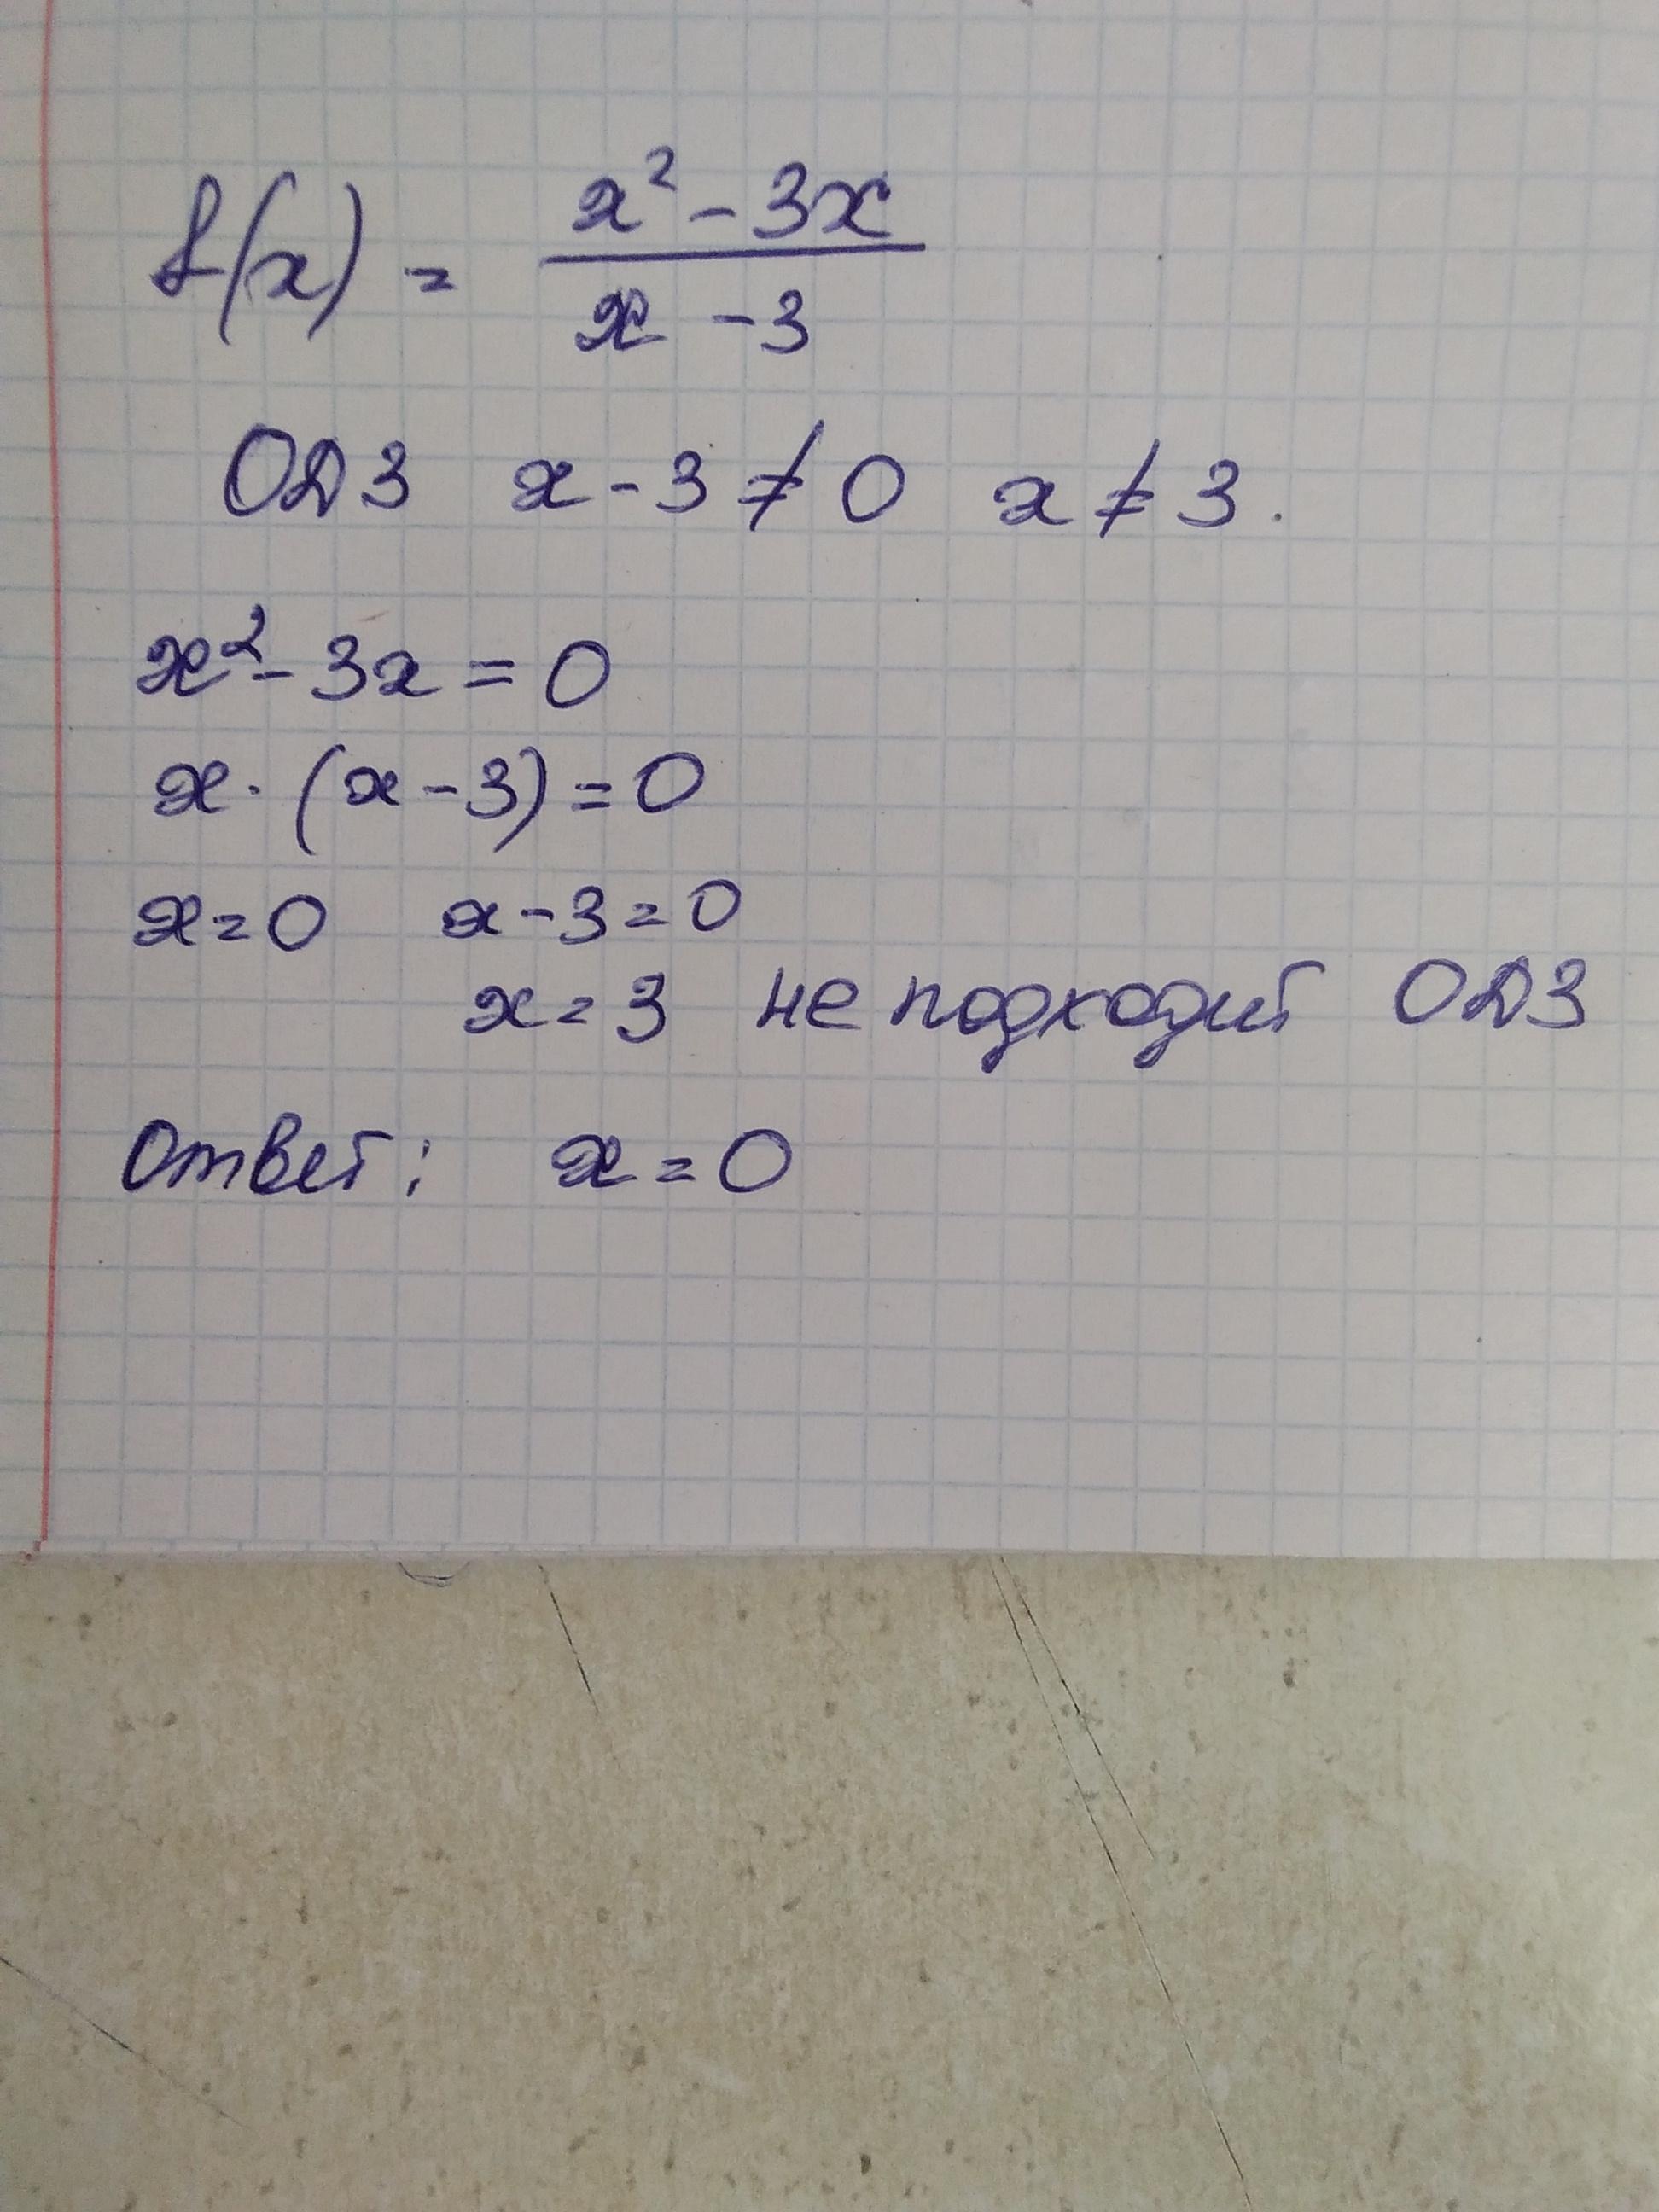 f(x) = (x² - 3x)/(x - 3)
ОДЗ x - 3 ≠ 0 x ≠ 3.
x² - 3x = 0
x · (x - 3) = 0
x = 0 x - 3 = 0
x = 3 не подходит ОДЗ
Ответ: x = 0